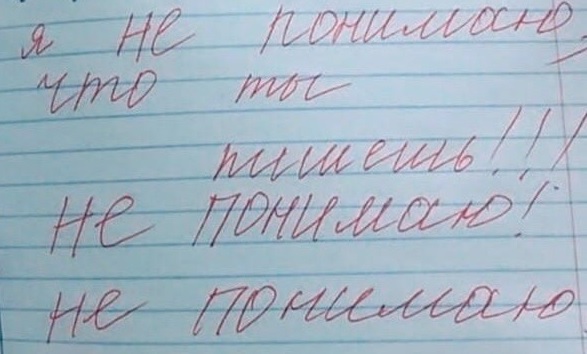 я не понимаю,
что ты
пишешь!!!
не понимаю!
не понимаю